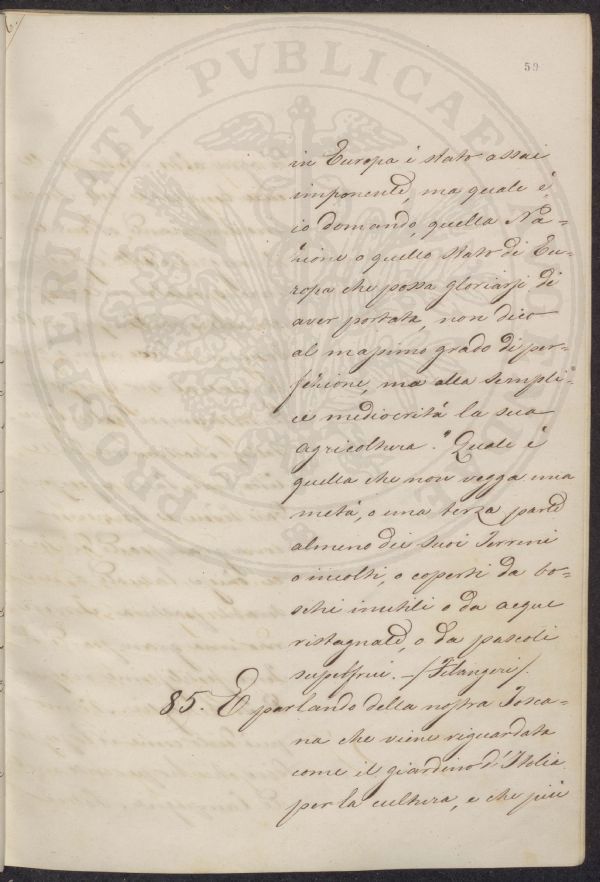 59
in Europa è stato assai
imponente, ma quale è,
io domando, quella Na=
zione o quello stato di Eu=
ropa che possa gloriarsi di
aver portata, non dico
al massimo grado di per=
fezione, ma alla sempli=
ce mediocrità la sua
agricoltura." Quale è
quella che non vegga una
metà, o una terza parte
almeno dei suoi Terreni
o incolti, o coperti da bo=
schi inutili o da acque
ristagnate, o da pascoli
superflui. —/Filangeri/.
85. E parlando della nostra Tosca=
na che viene riguardata
come il giardino d'Italia
per la cultura, e che più
PROSPERITATI PVBLICAE AVGENDAE